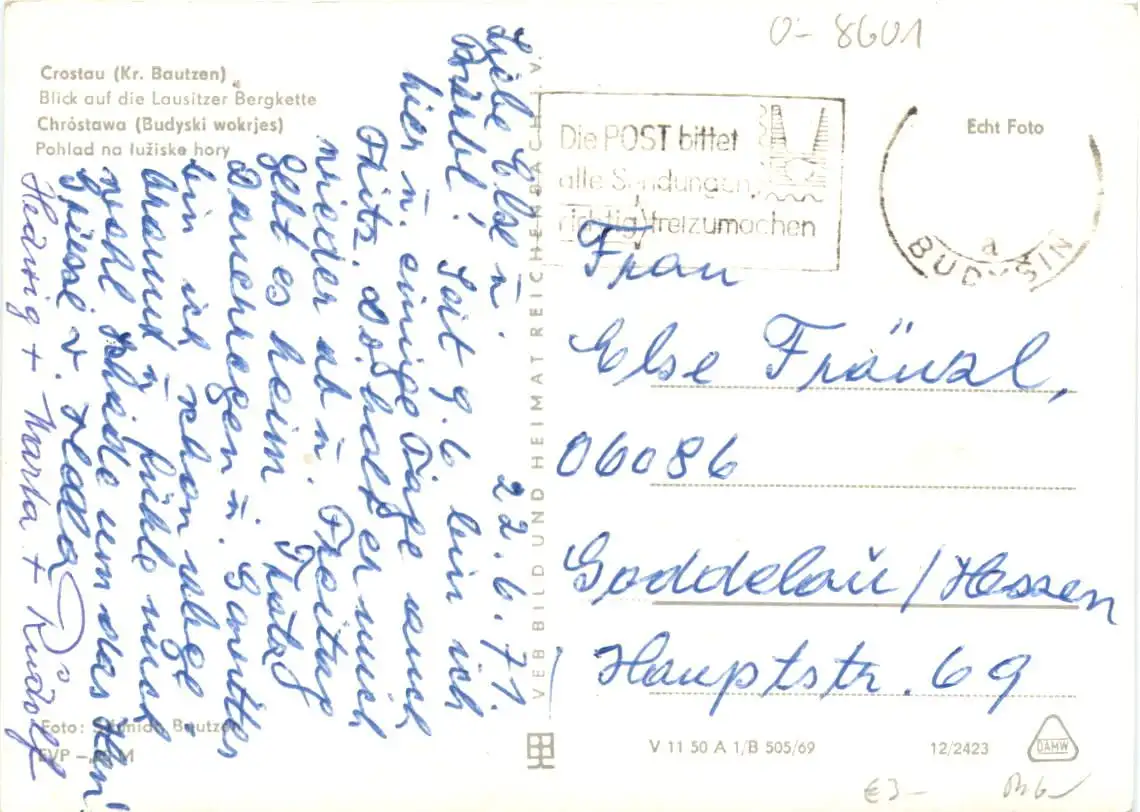 0-8601
Crostau (Kr. Bautzen)
Blick auf die Lausitzer Bergkette
Chróstawa (Budyski wokrjes)
Pohlad na łužiske hory
Die POST bittet
alle Sendungen
richtig freizumachen
Echt Foto
BUDYŠIN
a
22.6.71.
Liebe Else ū.
Bärbl! Seit 9.6 bin ich
hier ū. einige Tage auch
Fritz. holt er mich
wieder ab ū. Freitag
geht es heim.
Dauerregen ū.
bin ich schon
braun ū. fühle mich
wohl um das
Grüsse v. Hella
Hedwig + Marta + Rudolf
VEB BILD UND HEIMAT REICHENBACH I. V.
Frau
Else Fränzl,
06086
Goddelaū/Hessen
Hauptstr. 69
Foto: Schmidt, Bautzen
EVP – M
V 11 50 A 1/B 505/69
12/2423
DAMW
€3–